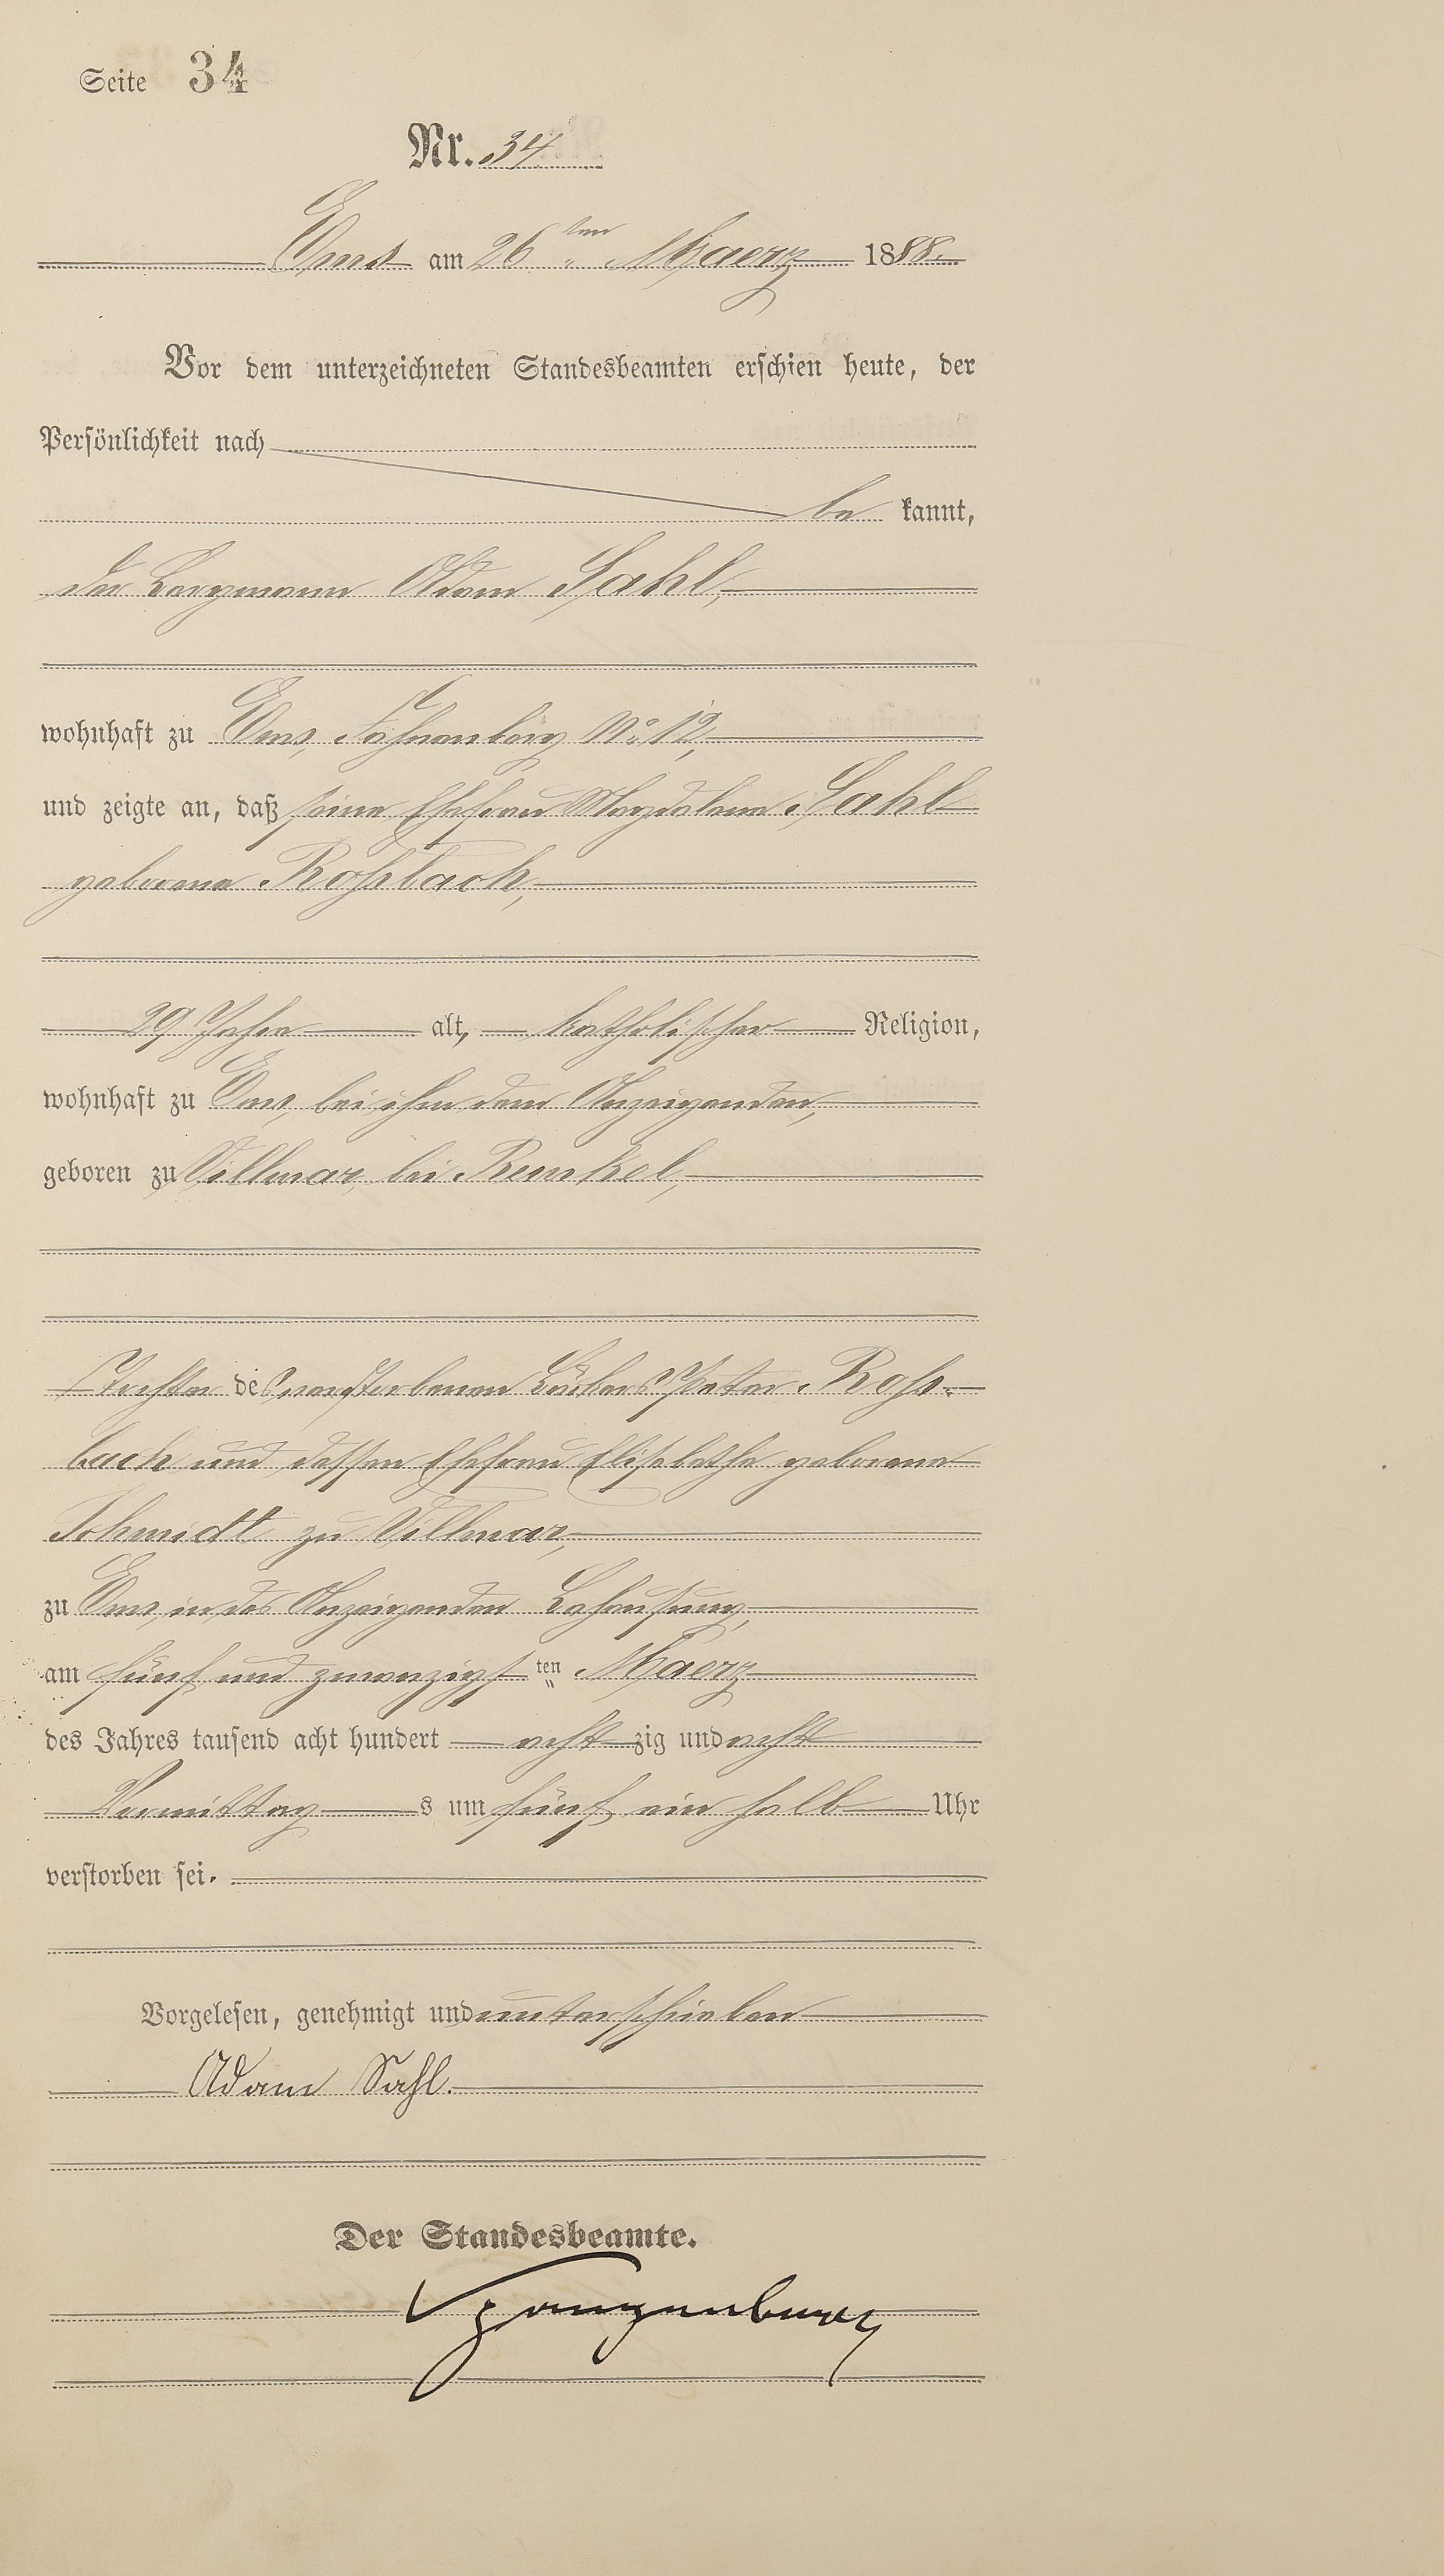 Seite 34
Nr. 34
Ems am 26ten Maerz 1888.
Vor dem unterzeichneten Standesbeamten erschien heute, der
Persönlichkeit nach
be kannt,
der Bergmann Adam Sahl,
wohnhaft zu Ems, Fahnenberg No. 12,
und zeigte an, daß seine Ehefrau Magdalena Sahl
geborene Roßbach,
29 Jahre alt, katholischer Religion,
wohnhaft zu Ems, bei ihm dem Anzeigenden,
geboren zu Villmar, bei Runkel,
Tochter des verstorbenen Peter Roß-
bach und dessen Ehefrau Elisabetha geborene
Schmidt zu Villmar,
zu Ems, in des Anzeigenden Behausung,
am fünf und zwanzigsten Maerz
des Jahres tausend acht hundert achtzig und acht
Vormittags um fünf ein halb Uhr
verstorben sei.
Vorgelesen, genehmigt und unterschrieben
Adam Sahl.
Der Standesbeamte.